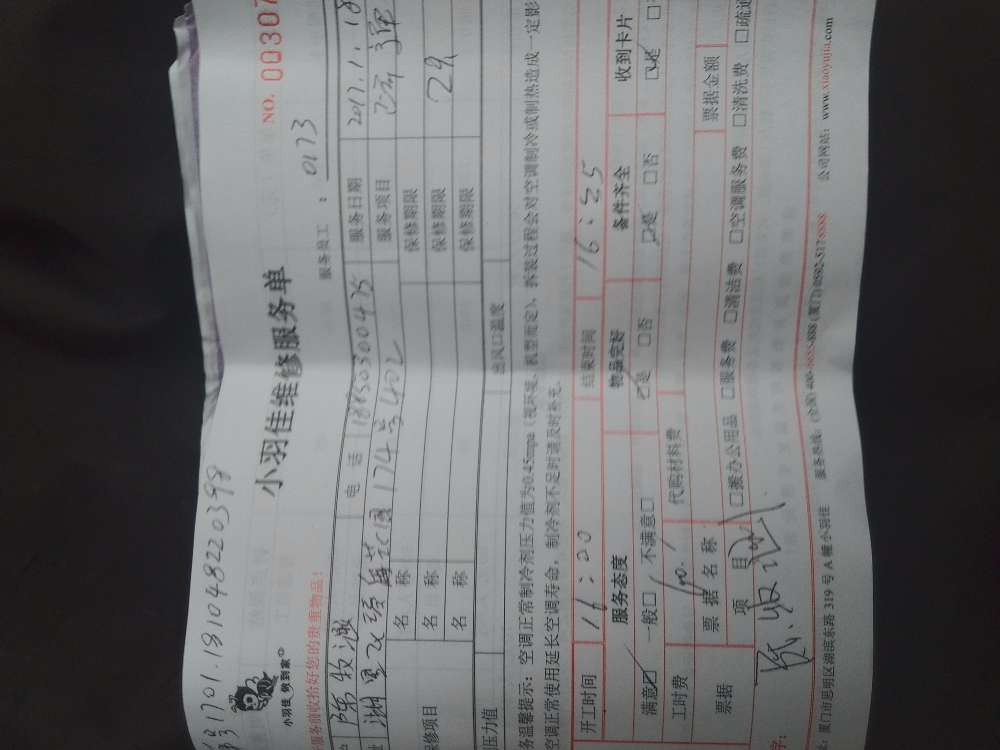 1701.181048220398
小羽佳 做到家
小羽佳维修服务单
NO. 00307
服务员工： 0173
服务前收拾好您的贵重物品！
电 话 18850300475 服务日期 2017.1.18
174号402 服务项目
保修项目 名 称 保修期限
名 称 保修期限 2月
名 称 保修期限
压力值 出风口温度
务温馨提示：空调正常制冷剂压力值为0.45mpa（视环境、机型而定）、拆装过程会对空调制冷或制热造成一定影
空调正常使用延长空调寿命，制冷剂不足时请及时补充。
开工时间 16:20 结束时间 16:25
服务态度 物品完好 备件齐全 收到卡片
满意□ 一般□ 不满意□ □是 □否 □是 □否 □是
工时费 100. 代购材料费
票据 票 据 名 称 票据金额
项 目 □搬办公用品 □服务费 □清洁费 □空调服务费 □清洗费 □疏通
字：
：厦门市思明区湖滨东路 319 号 A 幢小羽佳 服务热线：(全国) 400-8855-888 (厦门) 0592-517-8888 公司网站：www.xiaoyujia.com